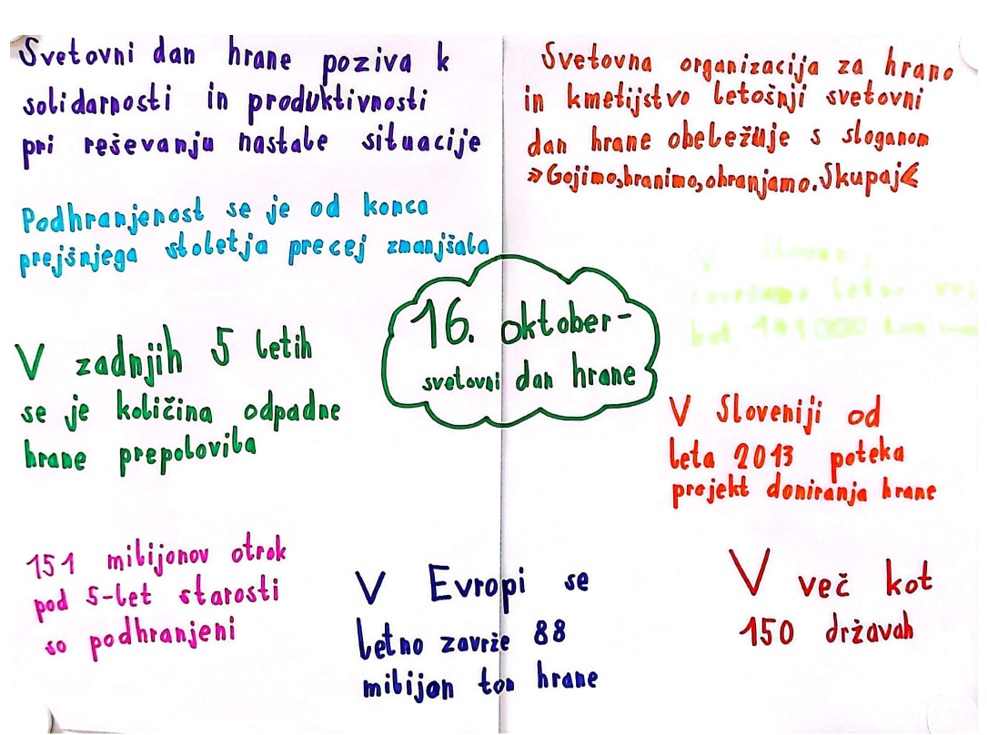 Svetovni dan hrane poziva k
solidarnosti in produktivnosti
pri reševanju nastale situacije
Svetovna organizacija za hrano
in kmetijstvo letošnji svetovni
dan hrane obeležuje s sloganom
»Gojimo,hranimo,ohranjamo.Skupaj«
Podhranjenost se je od konca
prejšnjega stoletja precej zmanjšala
V
letno
kot
16. oktober-
svetovni dan hrane
V zadnjih 5 letih
se je količina odpadne
hrane prepolovila
V Sloveniji od
leta 2013 poteka
projekt doniranja hrane
151 milijonov otrok
pod 5-let starosti
so podhranjeni
V Evropi se
letno zavrže 88
milijon ton hrane
V več kot
150 državah